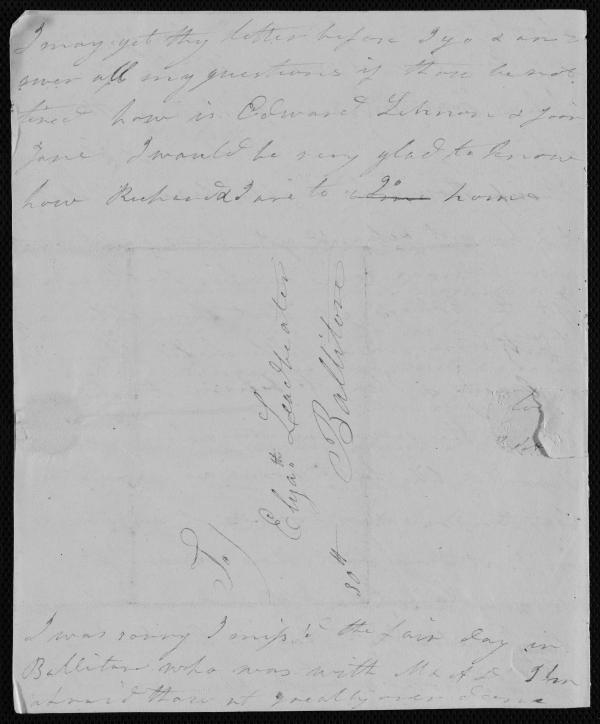 I may get thy letter before I go & an-
swer all my questions if thou be not
tired how is Edward Lebnon & poor
Jane I would be very glad to know
how Richard & I are to go home
To/
Elizath. Leadbeater
Ballitore
30th
I was sorry I miss'd the fair day in
Ballitore who was with M & A L I am
afraid thou art greatly over